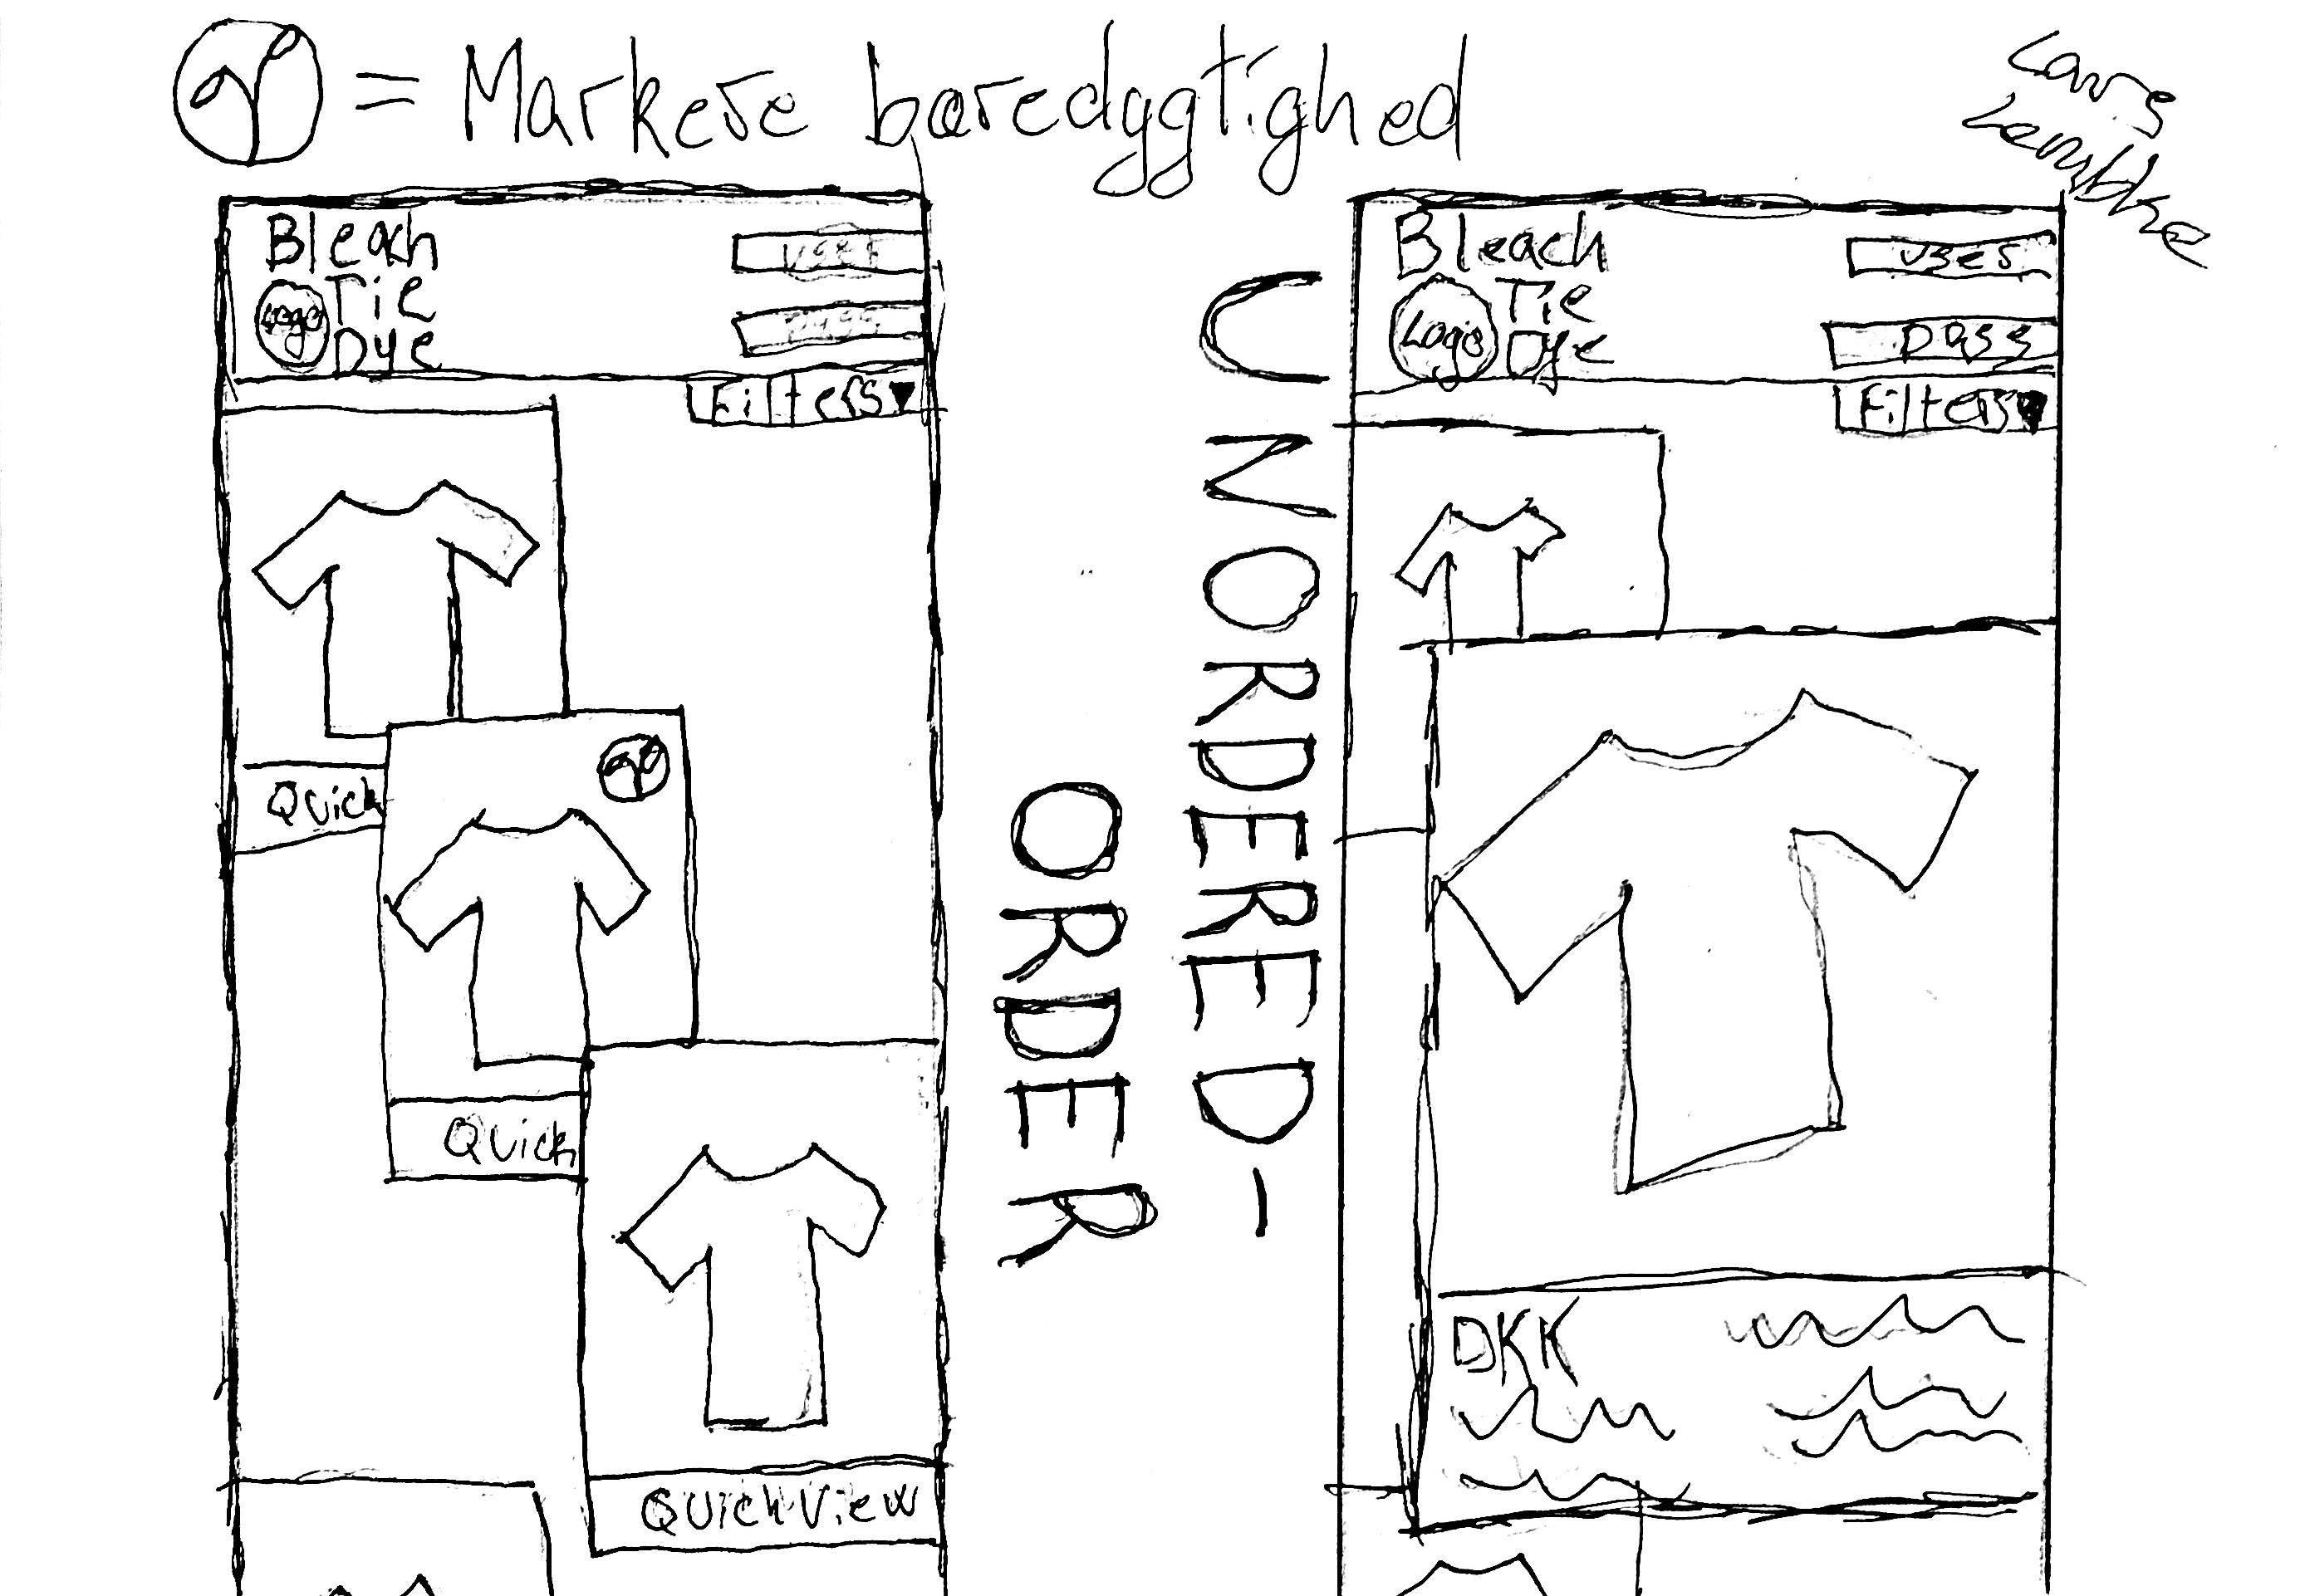 = Markere baredygtighed
Bleach
Tie
Dye
Logo
user
pass
Filters
Quick
Quick
Quick View
UNORDERED-
ORDER
Bleach
Tie
Dye
Logo
user
pass
Filters
DKK